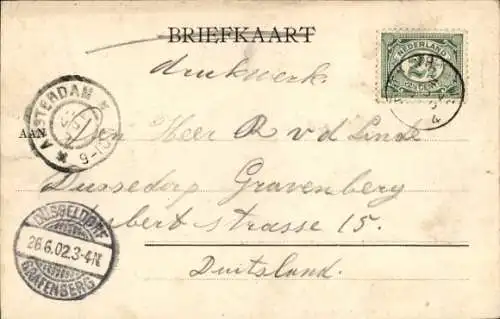 BRIEFKAART
drukwerk.
NEDERLAND
2½
AMSTERDAM
AAN
den Heer R v d Linde
Dusseldorp Gravenberg
bert strasse 15.
Duitsland.
DÜSSELDORF
26.6.02.3-4N
GRAFENBERG